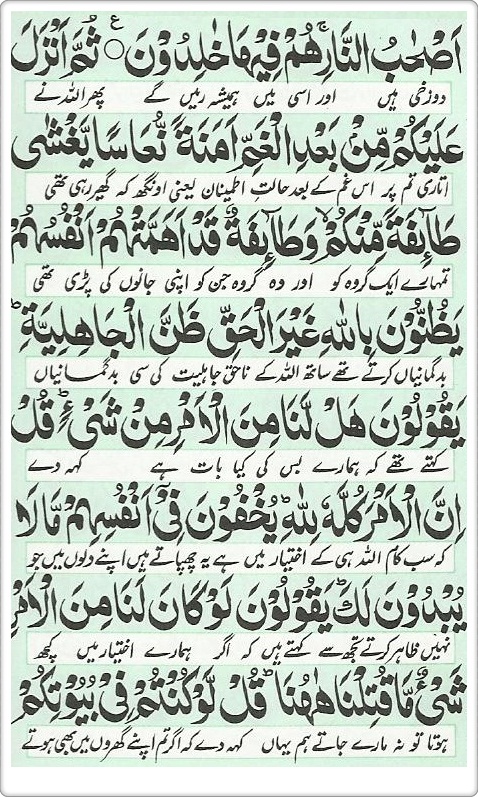 اَصْحٰبُ النَّارِ ۚ هُمْ فِيْهَا خٰلِدُوْنَ ۝ ع ثُمَّ اَنْزَلَ
دوزخی ہیں اور اسی میں ہمیشہ رہیں گے پھر اللہ نے
عَلَيْكُمْ مِّنْۢ بَعْدِ الْغَمِّ اَمَنَةً نُّعَاسًا يَّغْشٰى
اتاری تم پر اس غم کے بعد حالت اطمینان یعنی اونگھ کہ گھیر رہی تھی
طَآىِٕفَةً مِّنْكُمْ ۙ وَطَآىِٕفَةٌ قَدْ اَهَمَّتْهُمْ اَنْفُسُهُمْ
تمہارے ایک گروہ کو اور وہ گروہ جن کو اپنی جانوں کی پڑی تھی
يَظُنُّوْنَ بِاللّٰهِ غَيْرَ الْحَقِّ ظَنَّ الْجَاهِلِيَّةِ ؕ
بدگمانیاں کرتے تھے ساتھ اللہ کے ناحق جاہلیت کی سی بدگمانیاں
يَقُوْلُوْنَ هَلْ لَّنَا مِنَ الْاَمْرِ مِنْ شَىْءٍ ؕ قُلْ
کہتے تھے کہ ہمارے بس کی کیا بات ہے کہہ دے
اِنَّ الْاَمْرَ كُلَّهٗ لِلّٰهِ ؕ يُخْفُوْنَ فِىْۤ اَنْفُسِهِمْ مَّا لَا
کہ سب کام اللہ ہی کے اختیار میں ہے یہ چھپاتے ہیں اپنے دلوں میں جو
يُبْدُوْنَ لَكَ ؕ يَقُوْلُوْنَ لَوْ كَانَ لَنَا مِنَ الْاَمْرِ
نہیں ظاہر کرتے تجھ سے کہتے ہیں کہ اگر ہمارے اختیار میں کچھ
شَىْءٌ مَّا قُتِلْنَا هٰهُنَا ؕ قُلْ لَّوْ كُنْتُمْ فِىْ بُيُوْتِكُمْ
ہوتا تو نہ مارے جاتے ہم یہاں کہہ دے کہ اگر تم اپنے گھروں میں بھی ہوتے